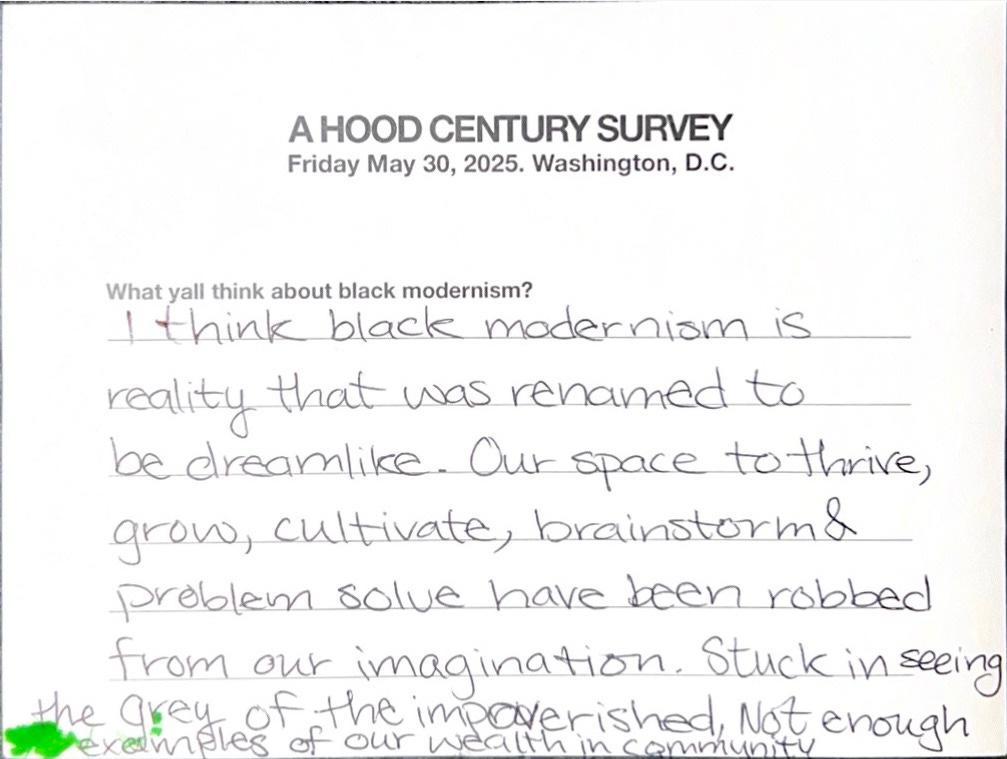 A HOOD CENTURY SURVEY
Friday May 30, 2025. Washington, D.C.
What yall think about black modernism?
I think black modernism is
reality that was renamed to
be dreamlike. Our space to thrive,
grow, cultivate, brainstorm &
problem solve have been robbed
from our imagination. Stuck in seeing
the grey of the impoverished, Not enough
examples of our wealth in community